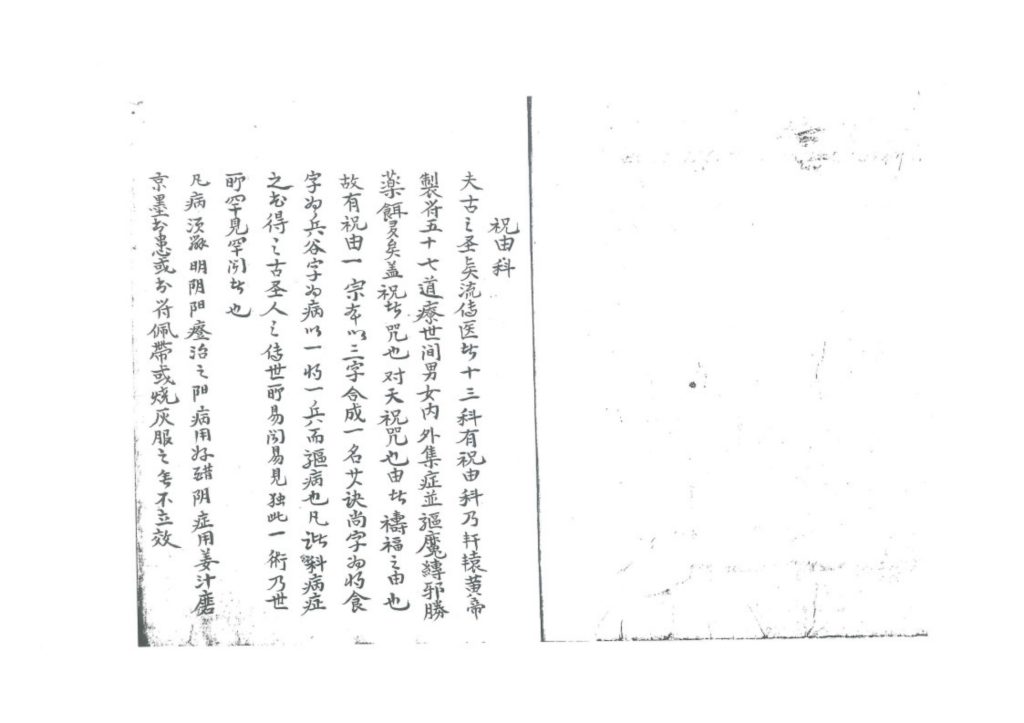 祝由科
夫古之圣贤流传医此十三科有祝由科乃轩辕黄帝
製符五十七道療世间男女内外集症並驅魔縛邪勝
藥餌多矣盖祝者咒也对天祝咒也由者禱福之由也
故有祝由一宗本以三字合成一名其诀尚字为将食
字为兵谷字为病以一将一兵而驅病也凡諸科病症
之书得之古圣人之传世所易闻易见独此一術乃世
所罕见罕闻者也
凡病须辨明阴阳症治之阳病用好醋阴症用姜汁磨
京墨书患或书符佩帶或烧灰服之無不立效